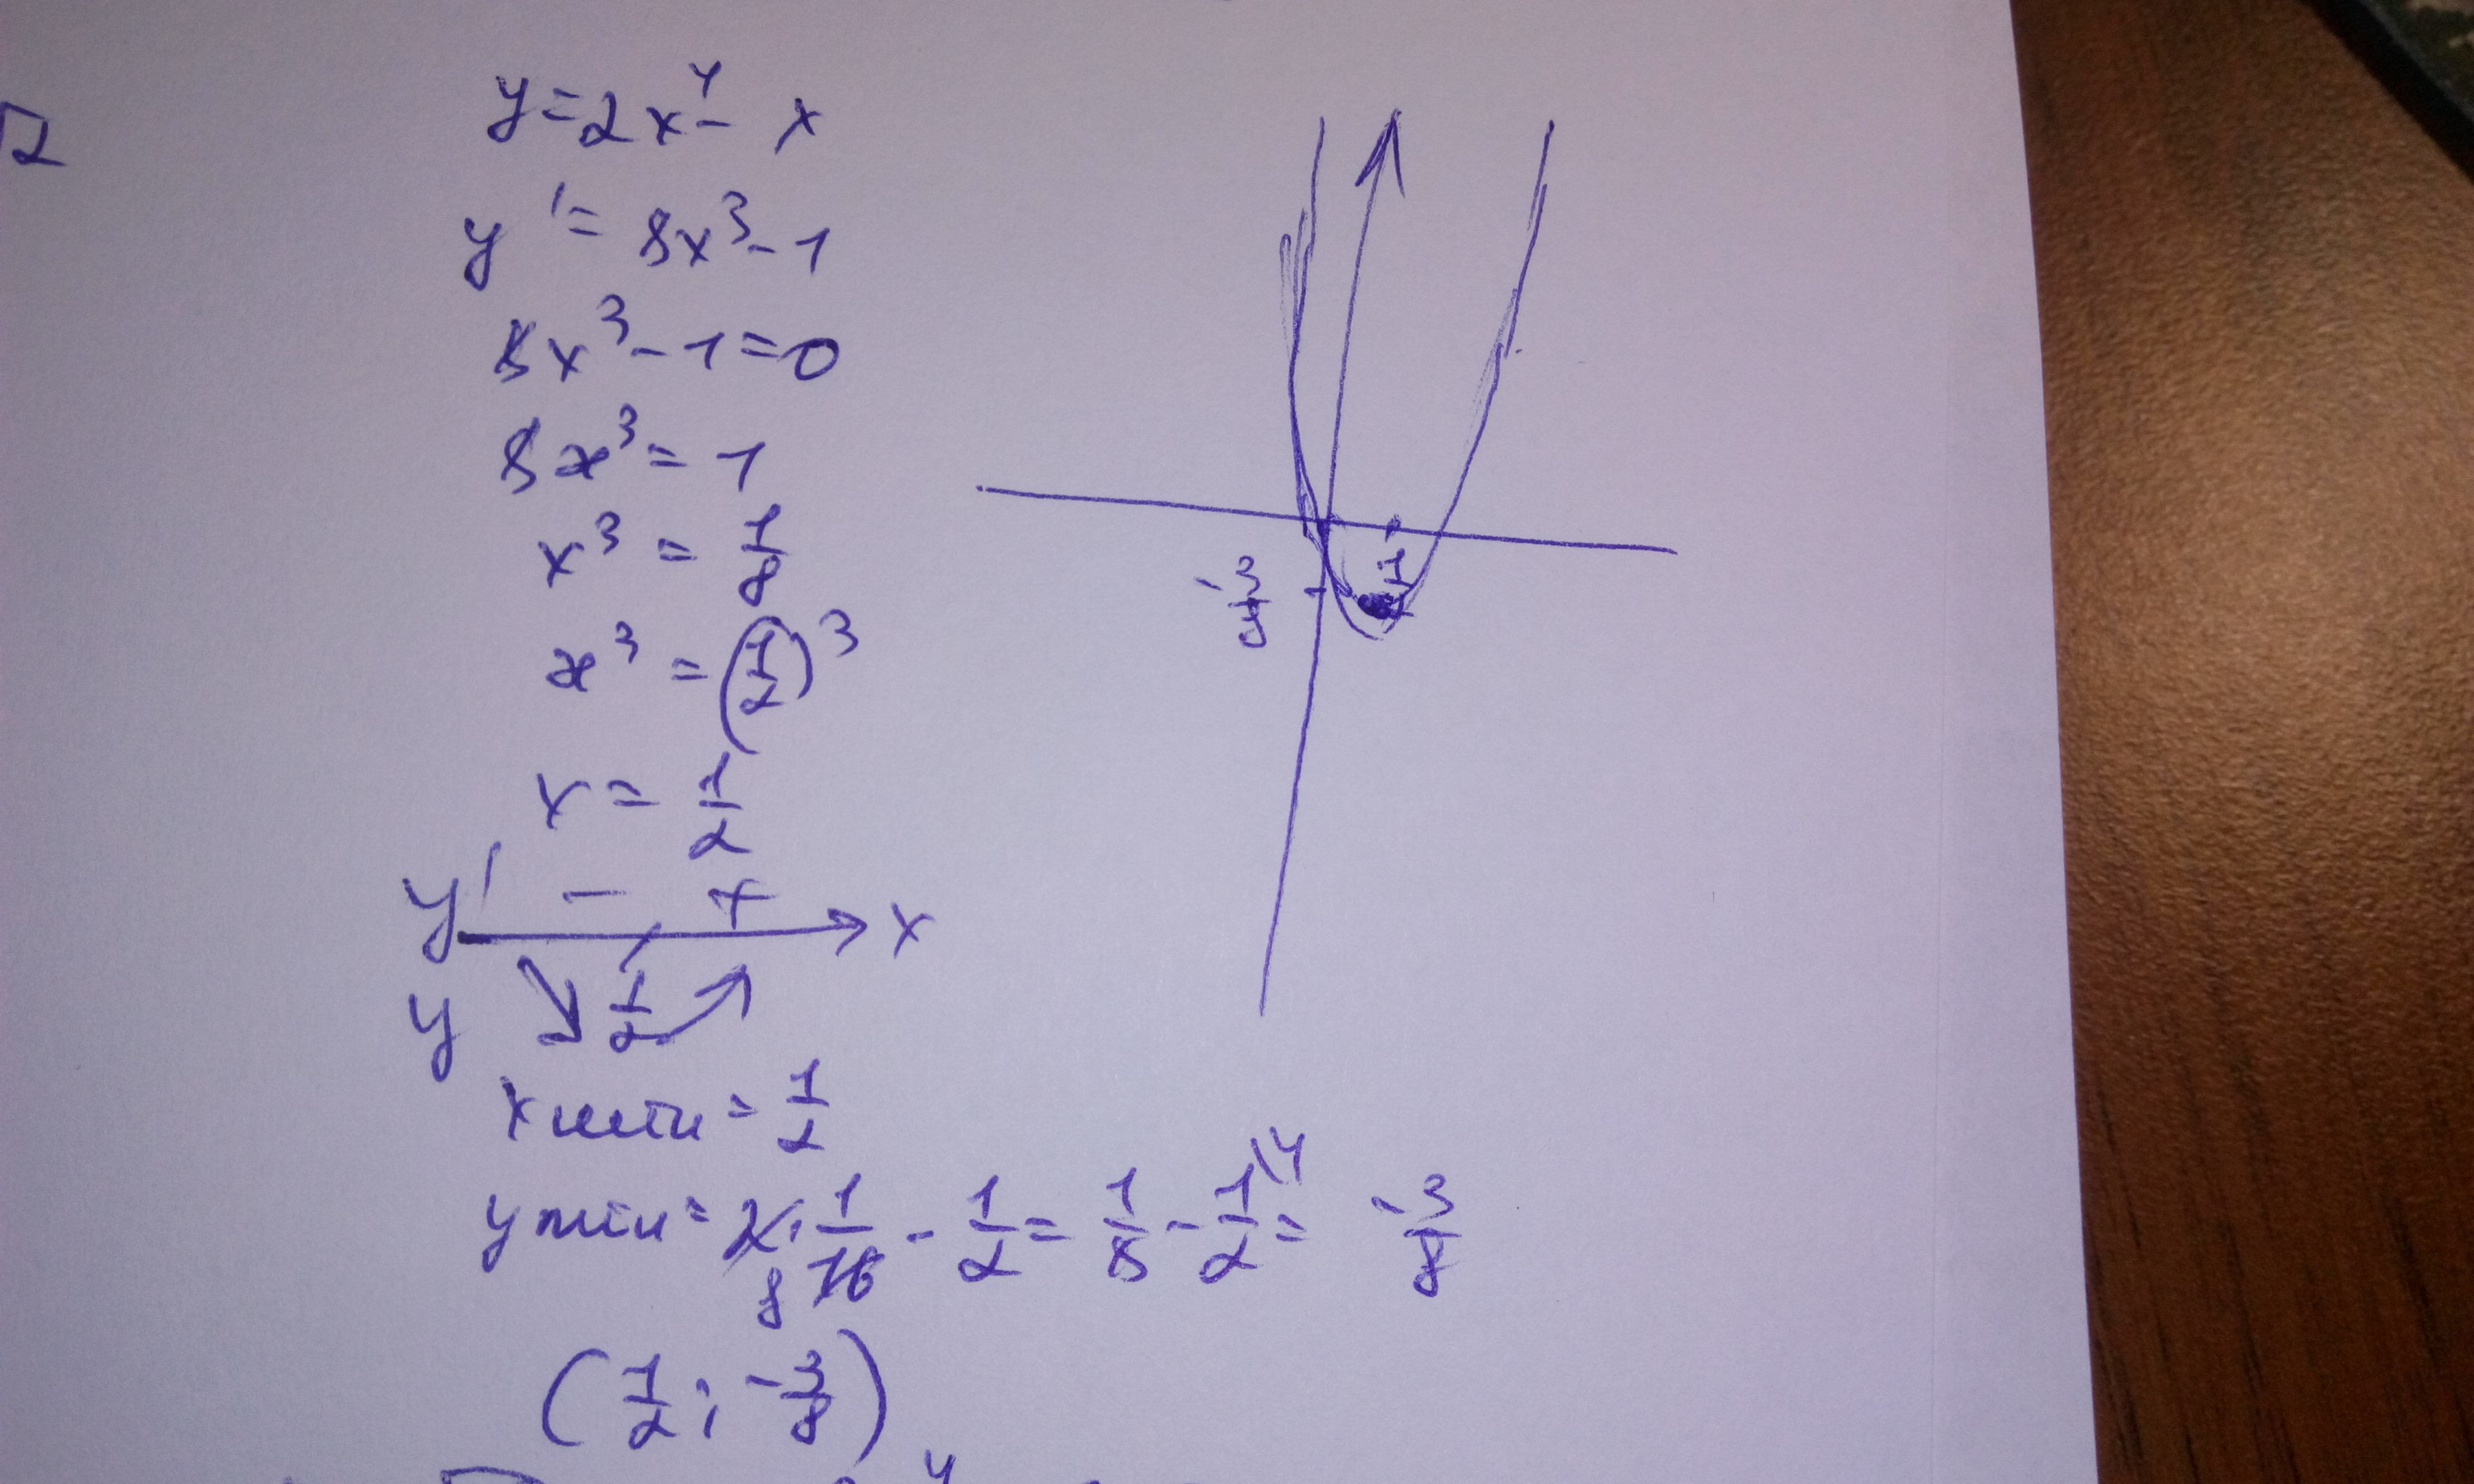 2
y = 2x⁴ - x
y' = 8x³ - 1
8x³ - 1 = 0
8x³ = 1
x³ = 1/8
x³ = (1/2)³
x = 1/2
y' - + x
y 1/2
xmin = 1/2
ymin = 2 · 1/16 - 1/2 = 1/8 - 1/2\4 = -3/8
8
(1/2; -3/8)
-3/8